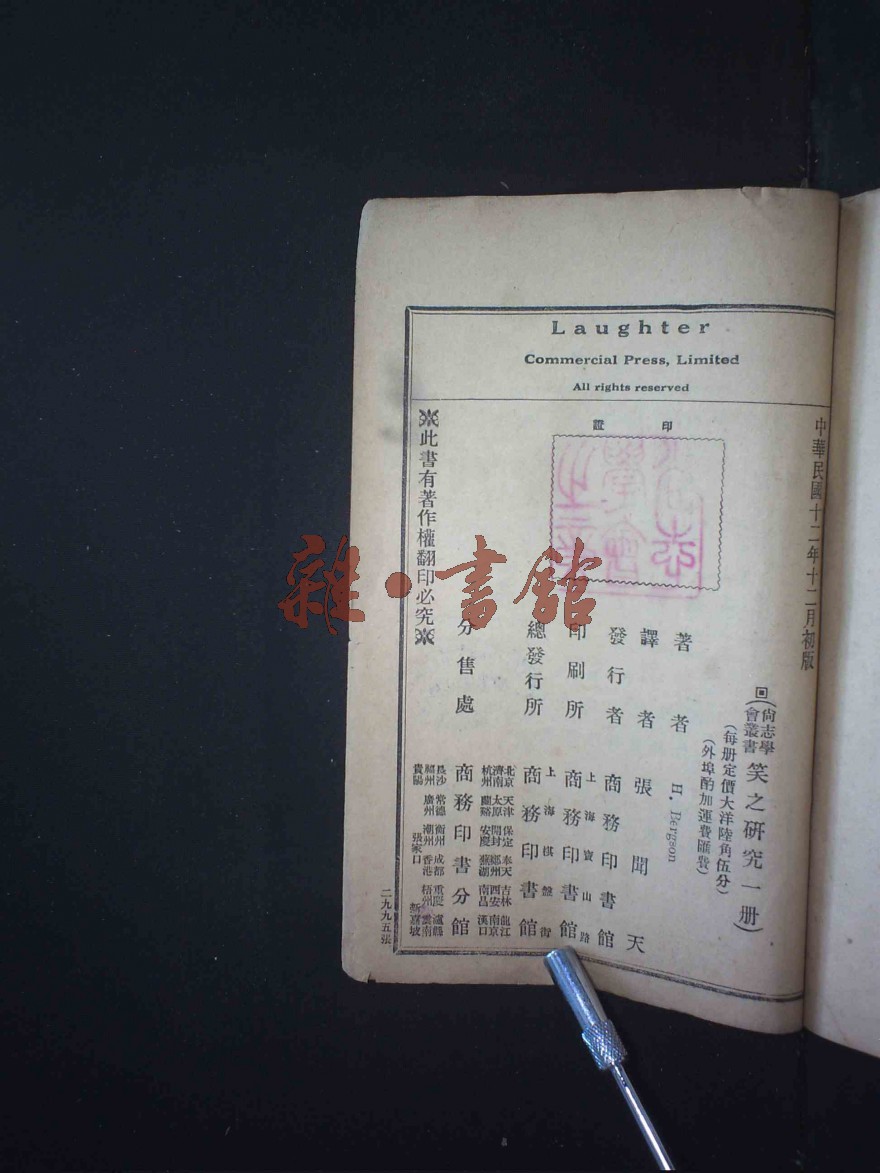 Laughter
Commercial Press, Limited
All rights reserved
印證
中華民國十二年十二月初版
回(尚志學會叢書笑之研究一册)
(每册定價大洋陸角伍分)
(外埠酌加運費匯費)
著者 H. Bergson
譯者 張聞天
發行者 商務印書館
印刷所 上海寶山路 商務印書館
總發行所 上海棋盤街 商務印書館
分售處 商務印書分館
北京 天津 保定 奉天 吉林 龍江
濟南 太原 開封 鄭州 西安 南京
杭州 蘭谿 安慶 蕪湖 南昌 漢口
長沙 常德 衡州 成都 重慶 瀘縣
福州 廣州 潮州 香港 梧州 雲南
貴陽 張家口 新嘉坡
此書有著作權翻印必究
二九九五張
雜·書館